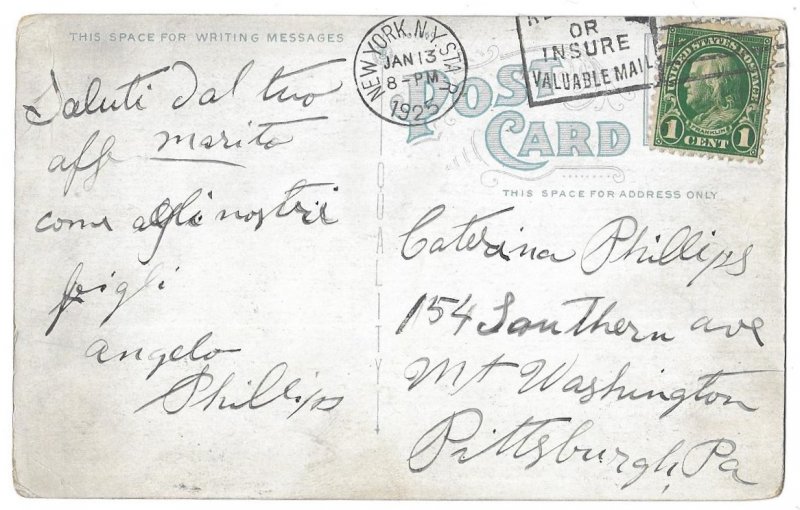 THIS SPACE FOR WRITING MESSAGES
Saluti dal tuo
aff marito
come agli nostri
figli
Angelo
Phillips
NEW YORK, N.Y. STA. P
JAN 13
8-PM
1925
OR
INSURE
VALUABLE MAIL
UNITED STATES POSTAGE
FRANKLIN
1 CENT 1
POST
CARD
THIS SPACE FOR ADDRESS ONLY
QUALITY
Caterina Phillips
154 Southern ave
Mt Washington
Pittsburgh, Pa